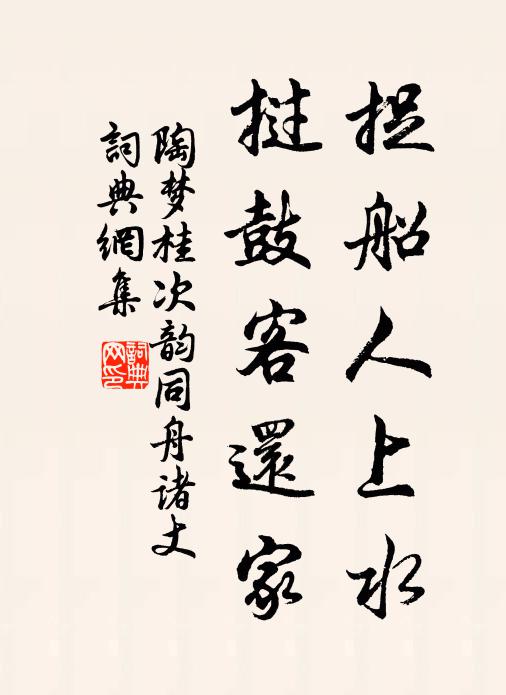 捉船人上水
撾鼓客還家
陶梦桂次韵同舟诸丈
詞典網集
詞典网印